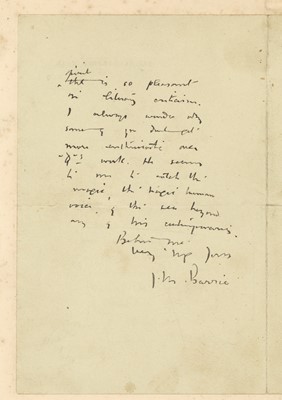 spirit
is so pleasant
in literary criticism.
I always wonder why
some of you don't get
more enthusiastic over
"Q's" work. He seems
to me to catch the
magic, the human
voice, of the sea beyond
any of his contemporaries.
Believe me
Very Truly Yours
J. M. Barrie